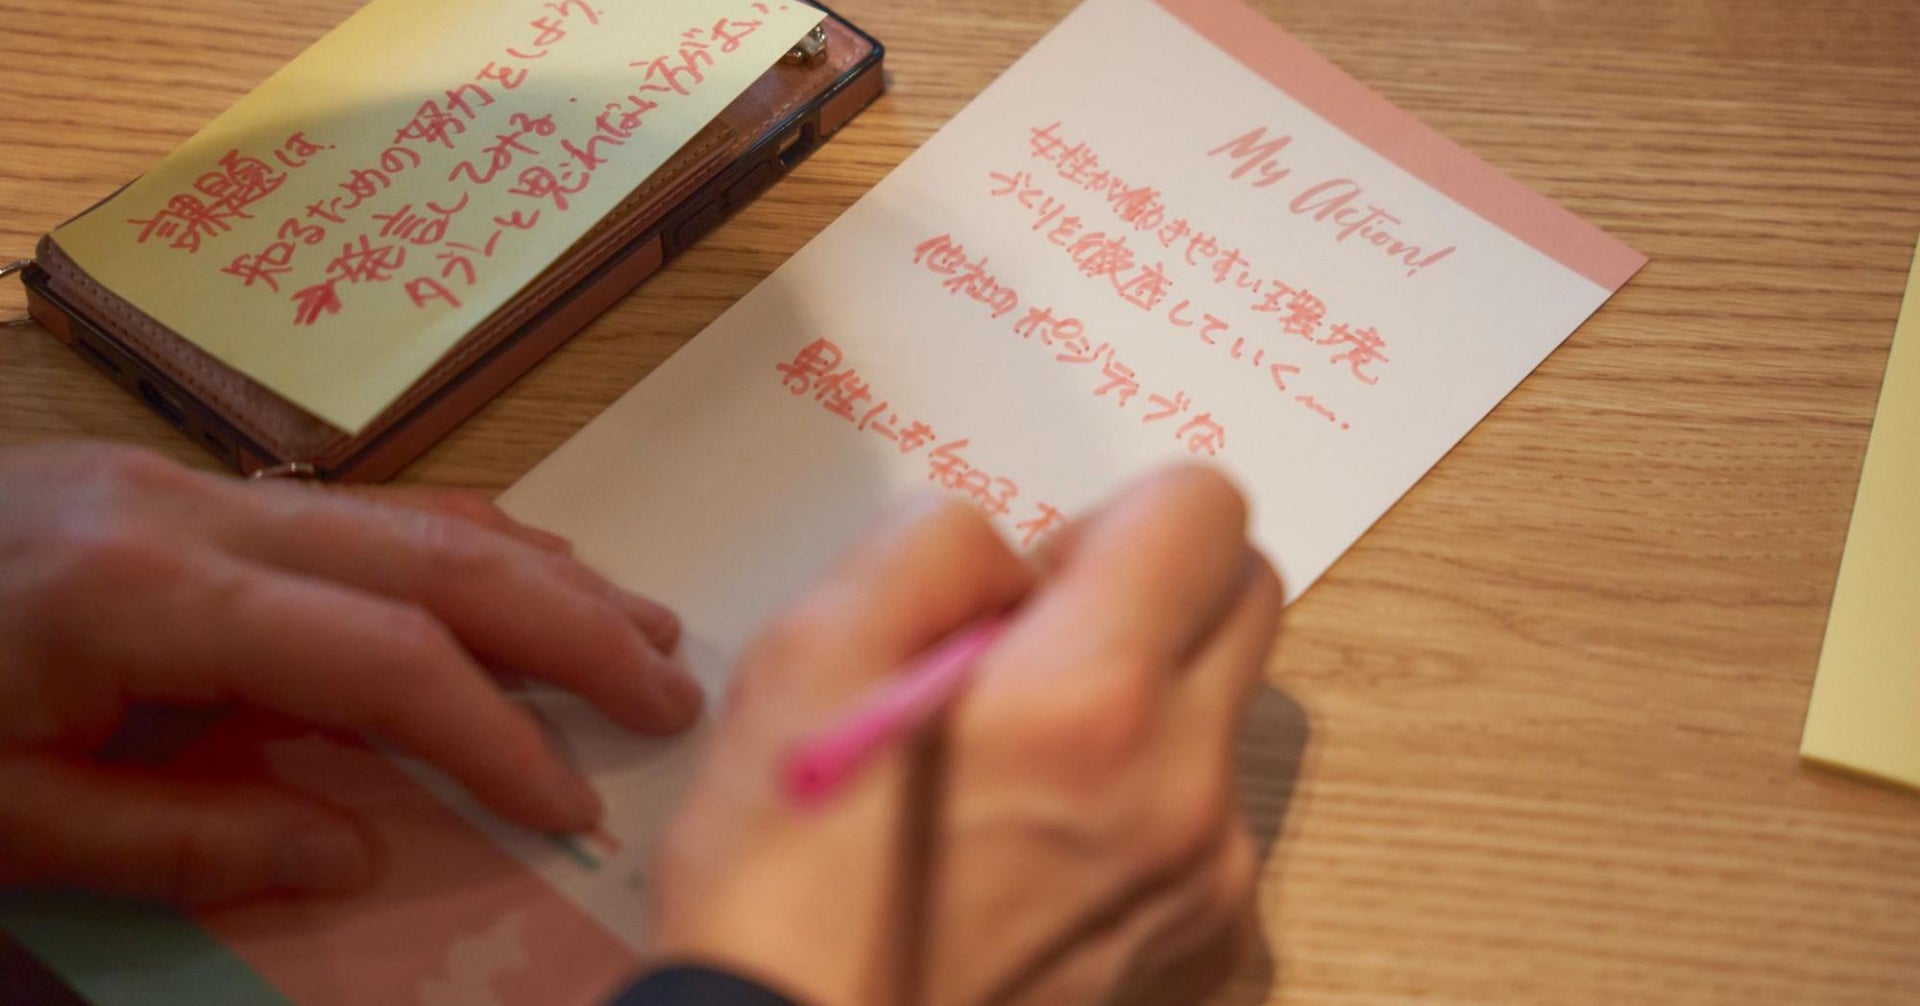 課題は、
知るための努力をしよう
→発言してみる。
タブーと思わない方がよい。
My Action!
女性が働きやすい環境
づくりを徹底していく〜.
他社のポジティブな
男性にも